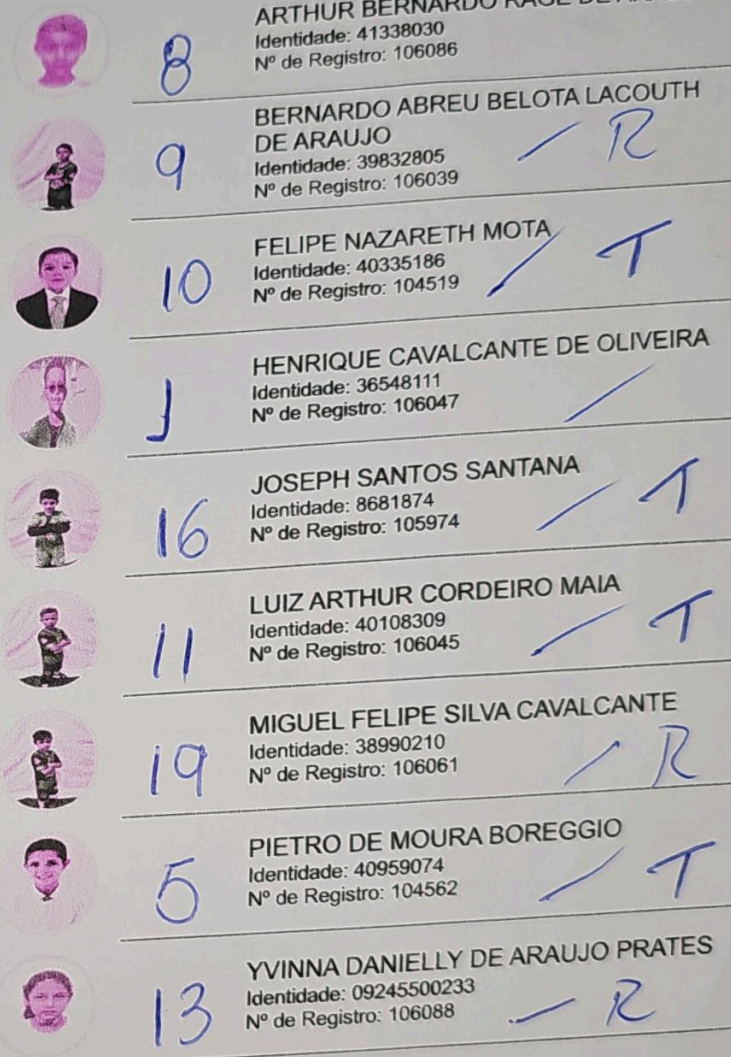 ARTHUR BERNARDO
8 Identidade: 41338030
Nº de Registro: 106086
BERNARDO ABREU BELOTA LACOUTH
DE ARAUJO / R
9 Identidade: 39832805
Nº de Registro: 106039
FELIPE NAZARETH MOTA / T
10 Identidade: 40335186
Nº de Registro: 104519
HENRIQUE CAVALCANTE DE OLIVEIRA
1 Identidade: 36548111
Nº de Registro: 106047 /
JOSEPH SANTOS SANTANA
16 Identidade: 8681874 / T
Nº de Registro: 105974
LUIZ ARTHUR CORDEIRO MAIA
11 Identidade: 40108309 / T
Nº de Registro: 106045
MIGUEL FELIPE SILVA CAVALCANTE
19 Identidade: 38990210
Nº de Registro: 106061 / R
PIETRO DE MOURA BOREGGIO
5 Identidade: 40959074 / T
Nº de Registro: 104562
YVINNA DANIELLY DE ARAUJO PRATES
13 Identidade: 09245500233
Nº de Registro: 106088 / R